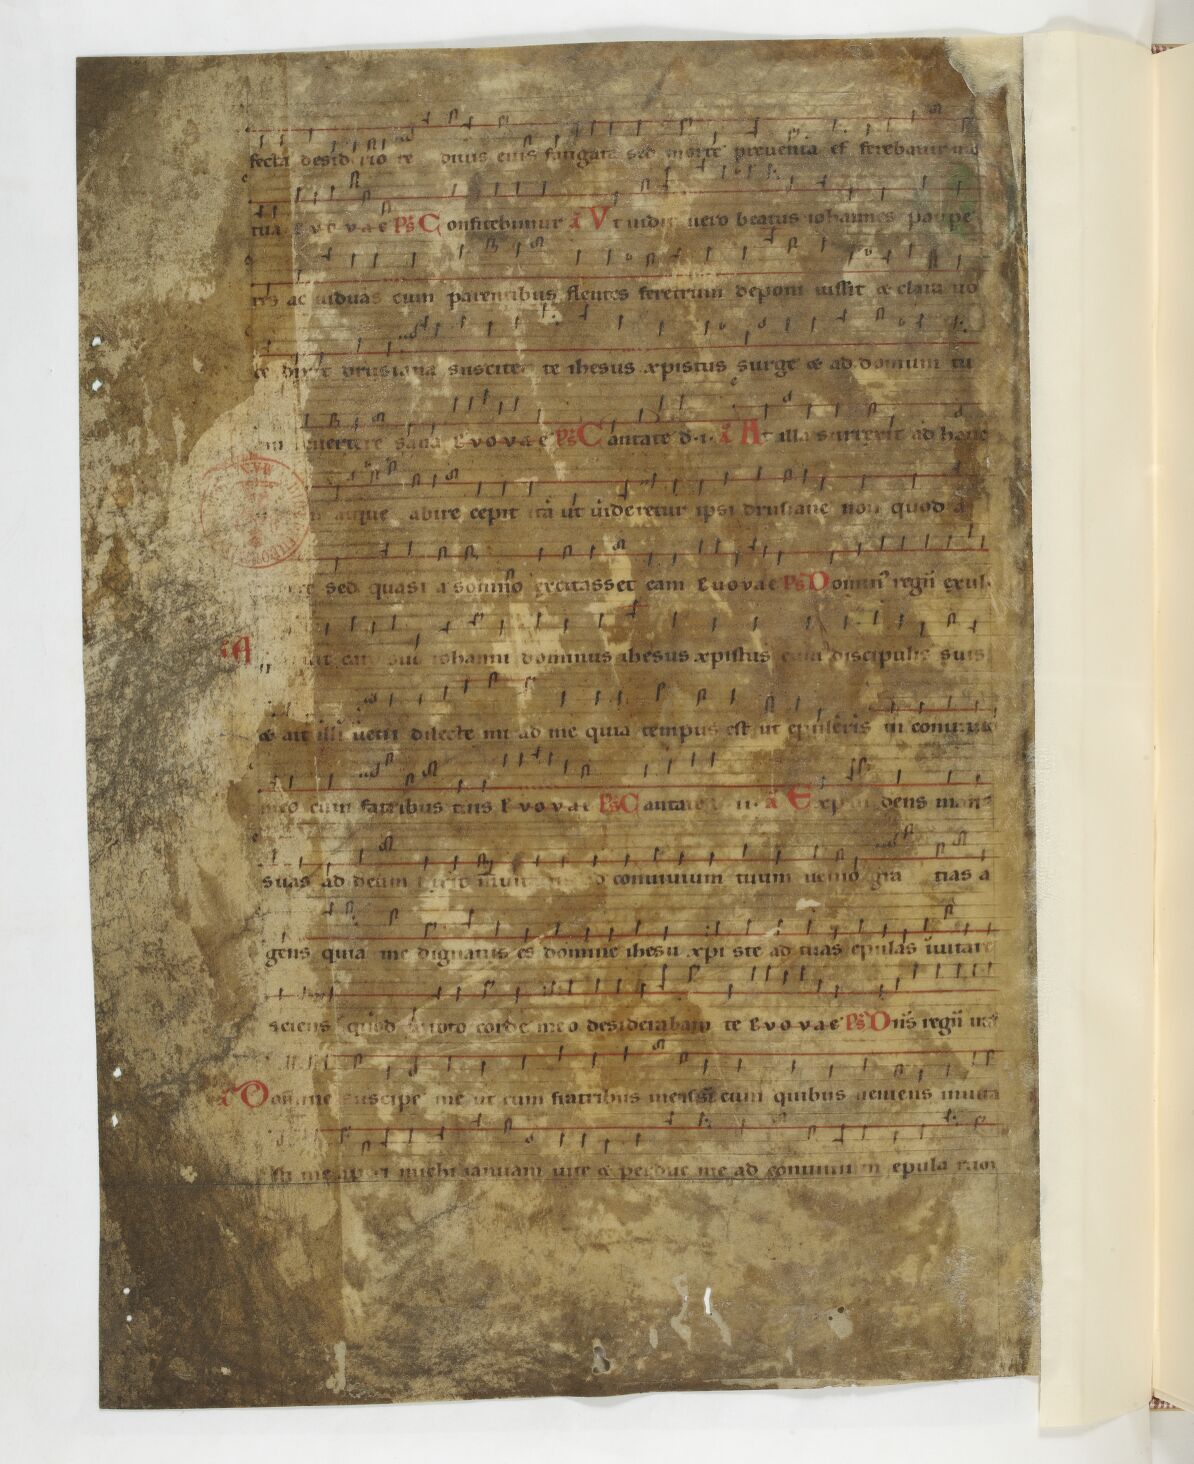 fecta desiderio te diuis eius fatigata sed morte preuenta ef ferebatur
tua e v o v a e Ps Confitebimur a Vt uidit uero beatus iohannes paupe
res ac uiduas cum parentibus flentes feretrum deponi iussit & clara uo
ce dixit drusiana suscitet te ihesus xpistus surge & ad domum tu
reuertere sana e v o v a e Ps Cantate d. i. a At illa surrexit ad hanc
atque abire cepit ita ut uideretur ipsi drusiane non quod a
sed quasi a somno excitasset eam e u o v a e Ps Domin regn exul
a A eam suo iohanni dominus ihesus xpistus cum discipulis suis
& ait illi ueni dilecte mi ad me quia tempus est ut epuleris in conuiuio
meo cum fratribus tuis e v o v a e Ps Cantate ii a Expandens man
suas ad deum dixit inuitatus ad conuiuium tuum uenio gra tias a
gens quia me dignatus es domine ihesu xpi ste ad tuas epulas inuitare
sciens quod ex toto corde meo desiderabam te e v o v a e Ps Dns regn
a Domine suscipe me ut cum fratribus meis sim cum quibus ueniens inuita
sti me aperi michi ianuam uite & perduc me ad conuiuium epula rum